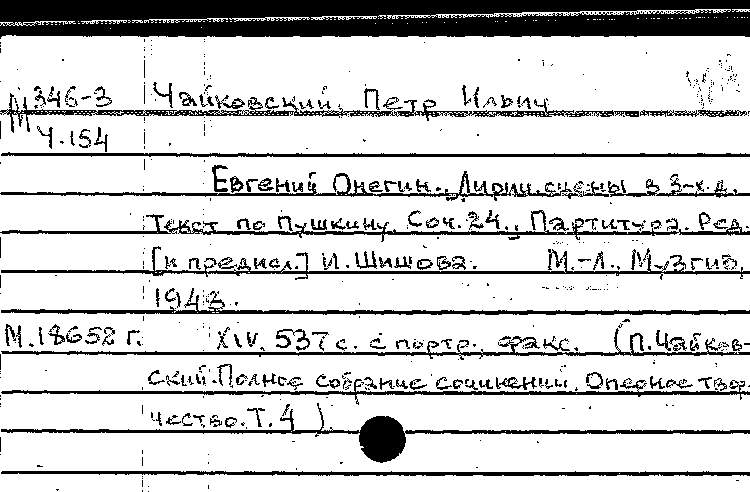 М 346-3 Чайковский, Петр Ильич
Ч.154
Евгений Онегин. Лирич. сцены в 3-х д.
Текст по Пушкину. Соч. 24. Партитура. Ред.
[и предисл.] И. Шишова. М.-Л., Музгиз,
1948.
М.18652 г. XIV, 537 с. с портр., факс. (П. Чайков-
ский. Полное собрание сочинений. Оперное твор-
чество. Т. 4)